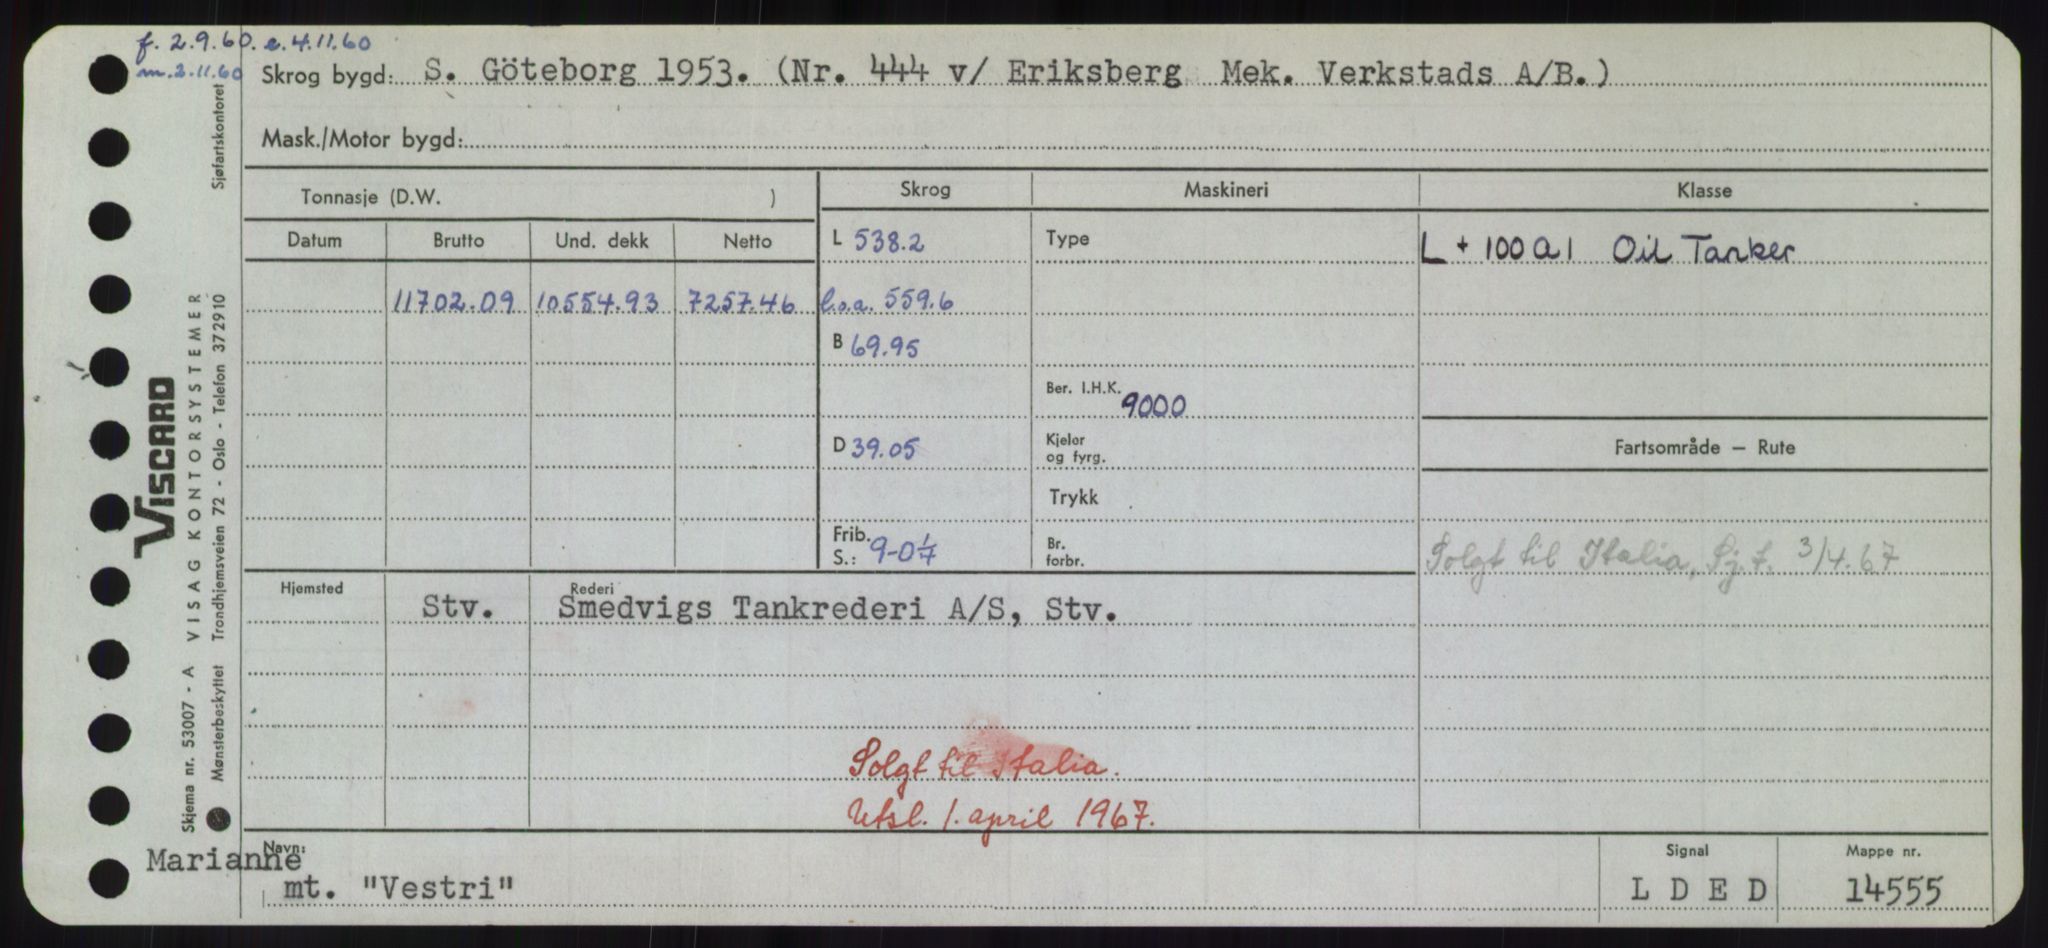 f. 2.9.60. e. 4.11.60
m. 2.11.60
Skrog bygd: S. Göteborg 1953. (Nr. 444 v/ Eriksberg Mek. Verkstads A/B.)
Mask./Motor bygd:
Tonnasje (D.W. )
Skrog Maskineri Klasse
Datum Brutto Und. dekk Netto
L 538.2 Type L + 100 A 1 Oil Tanker
11702.09 10554.93 7257.46 l.o.a. 559.6
B 69.95
Ber. I.H.K. 9000
D 39.05 Kjeler og fyrg.
Fartsområde — Rute
Trykk
Frib. S.: 9-0 1/7 Br. forbr.
Solgt til Italia, Sj.t. 3/4.67
Hjemsted Rederi
Stv. Smedvigs Tankrederi A/S, Stv.
Solgt til Italia.
Utsl. 1. april 1967.
Navn: Signal Mappe nr.
Marianne
mt. "Vestri" L D E D 14555
VISCARD
Skjema nr. 53007 - A VISAG KONTORSYSTEMER
Mønsterbeskyttet Trondhjemsveien 72 - Oslo - Telefon 372910 Sjøfartskontoret